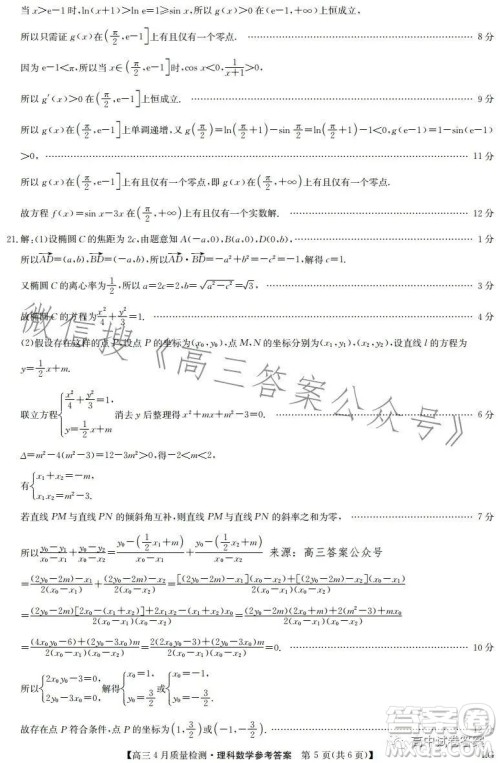 当 x>e-1 时, ln(x+1)>ln e=1≥sin x, 所以 g(x)>0 在(e-1,+∞)上恒成立,
所以只需证 g(x)在(π/2, e-1]上有且仅有一个零点. 8分
因为 e-1<π, 所以当 x∈(π/2, e-1]时, cos x<0, 1/(x+1)>0,
所以 g′(x)>0 在(π/2, e-1]上恒成立. 9分
所以 g(x)在(π/2, e-1]上单调递增, 又 g(π/2)=ln(π/2+1)-sin π/2=ln(π/2+1)-1<0, g(e-1)=1-sin(e-1)
>0, 11分
所以 g(x)在(π/2, e-1]上有且仅有一个零点, 即 g(x)在(π/2,+∞)上有且仅有一个零点.
故方程 f(x)=sin x-3x 在(π/2,+∞)上有且仅有一个实数解. 12分
21.解:(1)设椭圆 C 的焦距为 2c, 由题意知 A(-a,0), B(a,0), D(0,b), 1分
所以AD=(a,b), BD=(-a,b), 所以AD·BD=-a²+b²=-1, 解得 c=1.
又椭圆 C 的离心率为 1/2, 所以 a=2c=2, b=√(a²-c²)=√3, 3分
故椭圆 C 的方程为 x²/4+y²/3=1. 4分
(2)假设存在这样的点 P, 设点 P 的坐标为(x₀,y₀), 点 M,N 的坐标分别为(x₁,y₁),(x₂,y₂), 设直线 l 的方程为
y=1/2x+m.
联立方程{x²/4+y²/3=1, y=1/2x+m 消去 y 后整理得 x²+mx+m²-3=0. 6分
Δ=m²-4(m²-3)=12-3m²>0, 得-2<m<2.
有{x₁+x₂=-m, x₁x₂=m²-3.
若直线 PM 与直线 PN 的倾斜角互补, 则直线 PM 与直线 PN 的斜率之和为零, 7分
所以(y₀-y₁)/(x₀-x₁)+(y₀-y₂)/(x₀-x₂)=(y₀-(1/2x₁+m))/(x₀-x₁)+(y₀-(1/2x₂+m))/(x₀-x₂) 来源:高三答案公众号
=((2y₀-2m)-x₁)/(2(x₀-x₁))+((2y₀-2m)-x₂)/(2(x₀-x₂))=([(2y₀-2m)-x₁](x₀-x₂)+[(2y₀-2m)-x₂](x₀-x₁))/(2(x₀-x₁)(x₀-x₂))
=((2y₀-2m)[2x₀-(x₁+x₂)]+2x₁x₂-x₀(x₁+x₂))/(2(x₀-x₁)(x₀-x₂))=((2y₀-2m)(2x₀+m)+2(m²-3)+mx₀)/(2(x₀-x₁)(x₀-x₂))
=((4x₀y₀-6)+(2y₀-3x₀)m)/(2(x₀-x₁)(x₀-x₂))=(2(2x₀y₀-3)+(2y₀-3x₀)m)/(2(x₀-x₁)(x₀-x₂))=0. 10分
所以{2x₀y₀-3=0, 2y₀-3x₀=0. 解得{x₀=1, y₀=3/2 或{x₀=-1, y₀=-3/2.
故存在点 P 符合条件, 点 P 的坐标为(1, 3/2)或(-1, -3/2).
【高三4月质量检测·理科数学参考答案 第5页(共6页)】
微信搜《高三答案公众号》
高中试卷答案